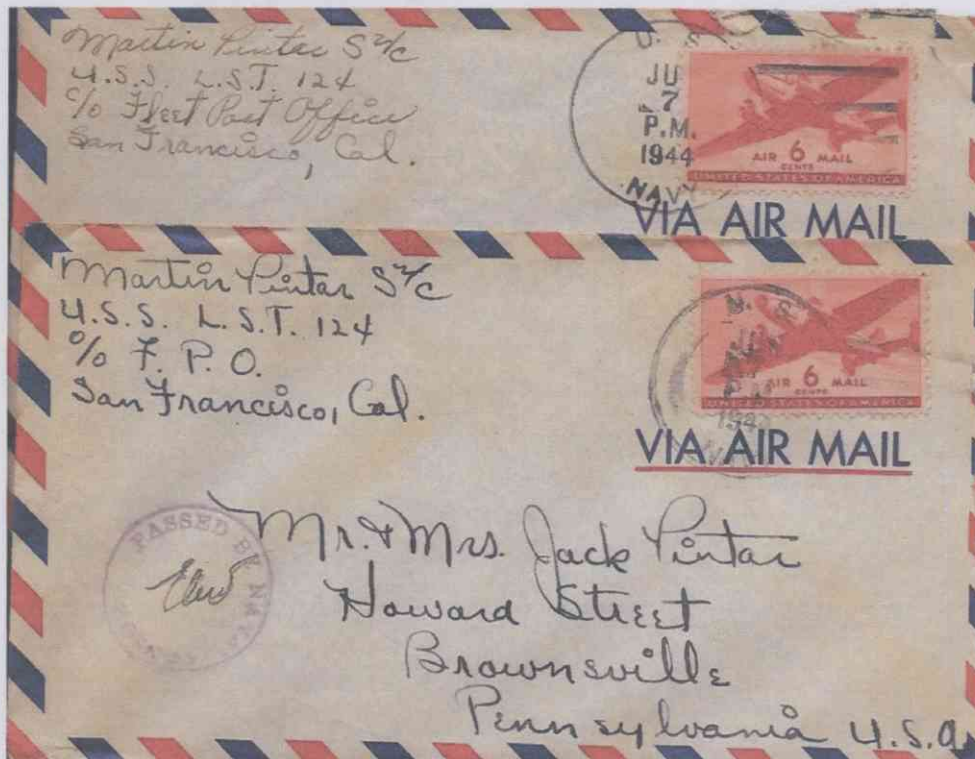 Martin Pintar S 2/c
U.S.S. L.S.T. 124
c/o Fleet Post Office
San Francisco, Cal.
U. S.
JU
7
P.M.
1944
NAVY
AIR 6 MAIL
CENTS
UNITED STATES OF AMERICA
VIA AIR MAIL
Martin Pintar S 2/c
U.S.S. L.S.T. 124
c/o F. P. O.
San Francisco, Cal.
U.
AIR 6 MAIL
CENTS
UNITED STATES OF AMERICA
VIA AIR MAIL
PASSED BY NAVAL
Mr. & Mrs. Jack Pintar
Howard Street
Brownsville
Pennsylvania U.S.A.